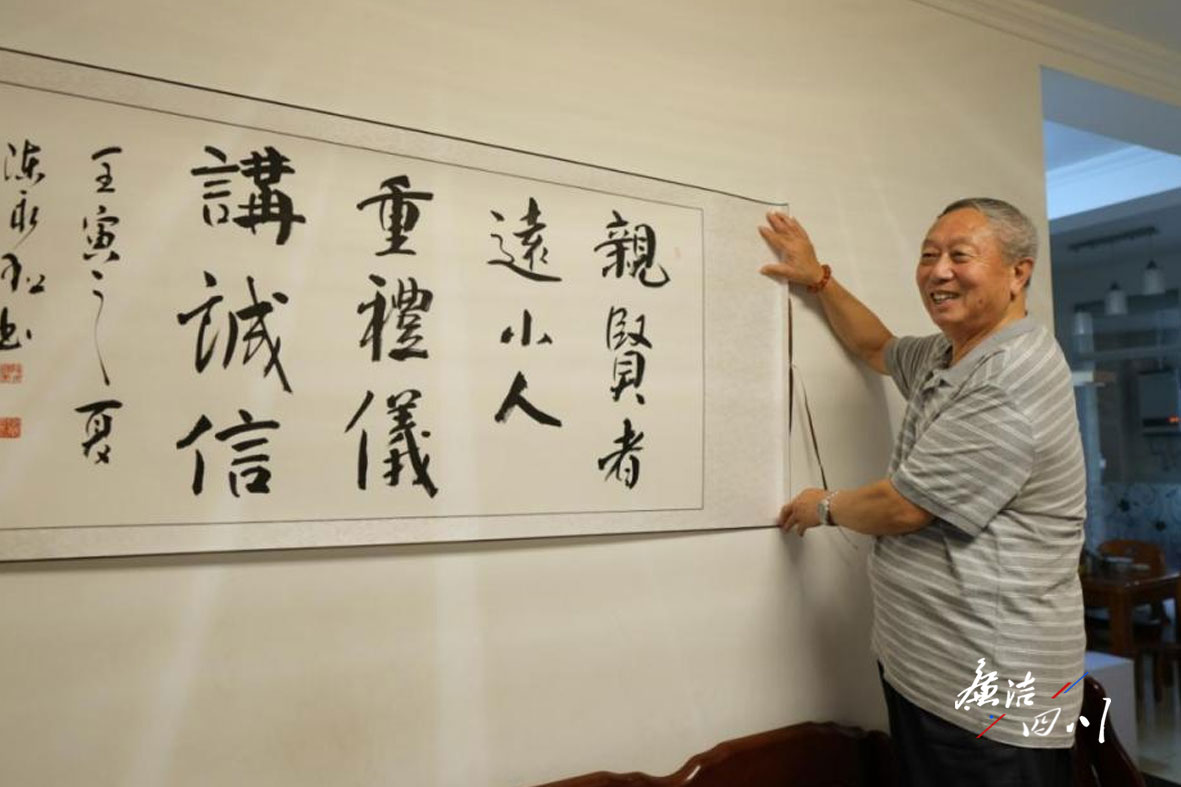 親賢者
遠小人
重禮儀
講誠信
壬寅之夏
陈永松书
廉洁
四川